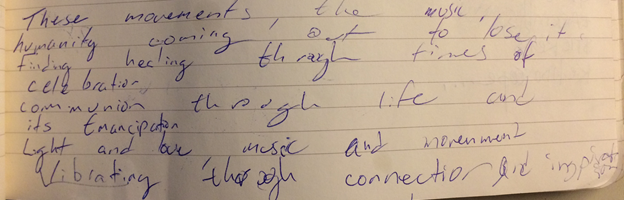 These movements, the music,
humanity coming out to lose it.
finding healing through times of
celebration,
communion through life and
its Emancipaton
Light and love, music and movenment
Vibrating through connection and